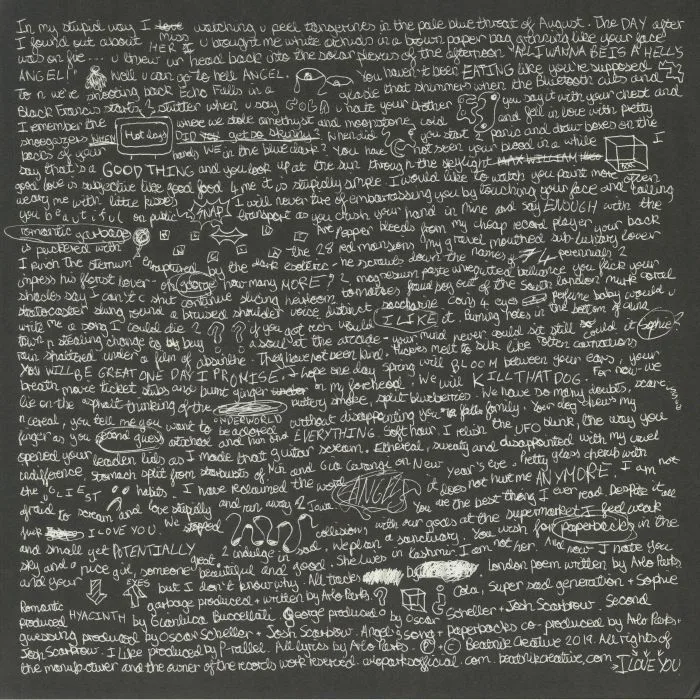 In my stupid way I watching u peel tangerines in the pale blue throat of August. The DAY after
I found out about HER I miss u brought me white orchids in a brown paper bag aching like your face
was on fire... u threw ur head back into the solar plexus of the afternoon 'ALL I WANNA BE IS A HELL'S
ANGEL!' Well u can go to hell ANGEL. You haven't been EATING like you're supposed
to n we're shooting back Euro Falls in a glade that shimmers when the bluetooth cuts and
Black Francis starts 2 stutter when u say COLA u hate your brother you say it with your chest and
I remember the where we stole amethyst and moonstone, cold and fell in love with pretty
shoegazers WHEN Hot days DID YOU get so skinny? When did you start 2 panic and draw boxes on the
backs of your hands WE in the blue dark? You have not seen your blood in a while I
say that's a GOOD THING and you look up at the sun through the skylight
good love is subjective like good food 4 me it is stupidly simple. I would like to watch you paint more often
weary me with little kisses I will never tire of embarrassing you by touching your face and telling
you beautiful on public SNAP! transport as you crush your hand in mine and say ENOUGH with the
romantic garbage Ari Popper bleeds from my cheap record player your back
is puckered with the 28 red mansions my gravel mouthed sub-luxury lover
I punch the sternum enraptured by the dark esoteric - he scrawls down the names of 74 perennials 2
impress his florist lover - of adore how many MORE? 2 magnesium paste unrequited brilliance you fuck your
shades say I can't shit continue slicing heirloom tomatoes, fraud boy out of the South London murk coral
stratocaster slung round a bruised shoulder voice distinct saccharine Cain's 4 eyes perfume baby would u
write me a song I could die 2 ?? if you got rich would I LIKE it. Burning holes in the bottom of
town n stealing change to buy a soul at the arcade - your mind never could sit still so could it Sophie
rain shattered under a film of absinthe. They have not been kind. Fuckers melt to silk like rotten carnations
YOU WILL BE GREAT ONE DAY I PROMISE. I hope one day spring will BLOOM between your ears, your
breath movie ticket stubs and burnt ginger on my forehead. We will KILL THAT DOG. For now - we
lie on the asphalt thinking of the buttery smoke, split blueberries. We have so many doubts, scarce
n cereal, you tell me you want to be adored UNDERWORLD without disappointing you a fella family. Your dog chews my
finger as you second guess attached and him and EVERYTHING. Soft hour. I relish the UFO blunk, the way you
opened your leaden lids as I made that guitar scream. Ethereal, sweaty and disappointed with my cruel
indifference stomach split from starbursts of Nin and Gia Carangi on New Year's eve. Pretty glass cherub with
the OLIEST habits. I have reclaimed the word ANGEL it does not hurt me ANYMORE. I am not
afraid to scream and love stupidly and run away 2 Iowa. You are the best thing I ever read. Despite it all
funk I LOVE YOU. We collisions with our gods at the supermarket I feel weak
and small yet POTENTIALLY great 2 indulge ur sad. We plan a sanctuary. You wish for paperbacks in the
sky and a nice gun, someone beautiful and good She lives in Kashmir I am not her. And now I hate you
and your EXES but I don't know why. All tracks London poem written by Arlo Parks
Romantic garbage produced + written by Arlo Parks ? Cola, Super sad generation + Sophie
produced HYACINTH by Gianluca Buccellati George produced by Oscar Scheller + Josh Scarbrow. Second
guessing produced by Oscar Scheller + Josh Scarbrow. Angel's song + Paperbacks co-produced by Arlo Parks +
Josh Scarbrow. I Like produced by P-rallel. All lyrics by Arlo Parks. ℗ + © Beatnik Creative 2019. All rights of
the manufacturer and the owner of the records work reserved. arloparksofficial.com. beatnikcreative.com I LOVE YOU